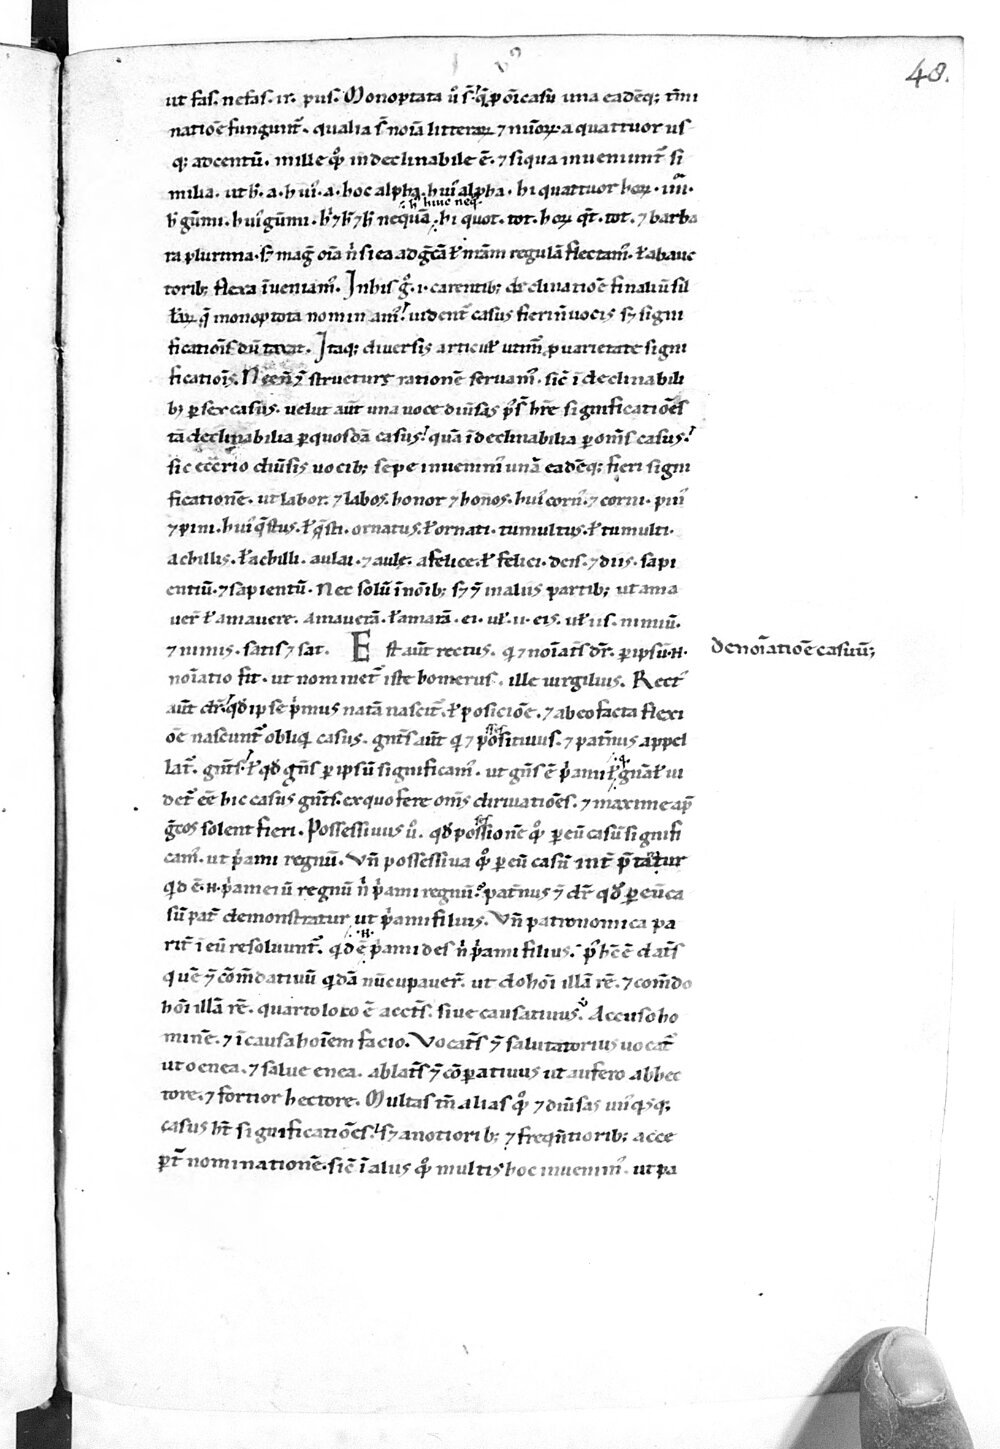 48.
ut fas. nefas. ir. pus. Monoptata ū s̄ q̄ ꝑ oi̅ casu una eadēq; t̄mi
natiōe fungunt̄. qualia s̄ noīa litteraꝝ ⁊ nūoꝝ a quattuor us
q; ad centū. mille qͦꝫ indeclinabile ē. ⁊ siqua inueniunt̄ si
milia. ut h̄. a. huiꝰ. a. hoc alpha. huiꝰ alpha. hi quattuor hoꝝ. iiii.
: h̄ hiuc neq.
h̄ gūmi. huiꝰ gūmi. h̄ ⁊ h̄ ⁊ h̄ nequā. hi quot. tot. hoꝝ q̄t. tot. ⁊ barba
ra plurima. s; mag̅ oīa n̄ sic a ad gͨca ł nr̄am regulā flectamꝰ. ł ab auc
torib; flexa īueniamꝰ. In his gͦ. i. carentib; declinatiōe finaliū sil
łaꝝ q̄ monoptota nominamꝰ. uident̄ casus fieri n̄ uocis s; signi
ficatiōis dū taxat. Itaq; diuersis articuł utimꝰ ꝓ uarietate signi
ficatiōis. structurę rationē seruamꝰ. sic̄ ī declinabili
b; ꝑ sex casus. uelut aūt una uoce diūsas ꝑs̄ h̄re significatiōes
tā declinabilia ꝑ quosdā casus. quā īdeclinabilia ꝑ om̄s casus.
sic ecͦrio diūsis uocib; sepe inuenimꝰ unā eadēq; fieri signi
ficationē. ut labor. ⁊ labos. honor ⁊ honos. huiꝰ cornꝰ. ⁊ corni. pinꝰ
⁊ pini. huiꝰ q̄stus. ł q̄sti. ornatus. ł ornati. tumultus. ł tumulti.
achillis. ł achilli. aulai. ⁊ aulę. a felice. ł felici. deis. ⁊ diis. sapi
entiū. ⁊ sapientū. Nec solū ī noīb; s; ⁊ ī aliis partib; ut ama
uer̄ ł amauere. amauerā. ł amarā. ei. uł. ii. eis. uł iis. nimiū.
⁊ nimis. satis ⁊ sat. Est aūt rectus. q̄ ⁊ noīat̄s dr̄. ꝑ ipsū. H.
de noīatiōe casuū;
noīatio fit. ut nominet̄ iste homerus. ille uirgilius. Rectꝰ
aūt dr̄. qđ ipse ꝑ̍mus natā nascit̄. ł posiciōe. ⁊ ab eo facta flexi
ōe nascunt̄ obliqͥ casus. gn̄t̄s aūt qͥ ⁊ possitiuus. ⁊ patn̄us appel
lat̄. gn̄t̄s. ł qđ gn̄s ꝑ ipsū significamꝰ. ut gn̄s ē p̍ami ł gn̄ał ui
det̄ eē hic casus gn̄t̄s. ex quo fere om̄s dirruatiōes. ⁊ maxime ap̄
gͨcos solent fieri. Possessiuus ū. qđ possessionē qͦꝫ ꝑ eū casū signifi
camꝰ. ut p̍ami regnū. Vn̄ possessiua qͦꝫ ꝑ eū casū int̄ p̄tāt̄ur
qđ ē. H. p̍ameiū regnū n̄ p̍ami regnū. patn̄us ⁊ dr̄ qđ ꝑ eū ca
sū pat̄ demonstratur ut p̍ami filius. Vn̄ patronomica pa
rit̄ ī eū resoluunt̄. qđ ē p̍amides n̄ p̍ami filius. p̍ h̄c ē dat̄s
quē ⁊ cōm̄datiuū qdā nūcupauer̄. ut do hoī illā rē. ⁊ com̄do
hoī illā rē. quarto loco ē acct̄s. siue causatiuus. Accuso ho
minē. ⁊ ī causa hoīem facio. Vocat̄s ⁊ salutatorius uocat̄
ut o enea. ⁊ salue enea. ablat̄s ⁊ cōꝑatiuus ut aufero ab hec
tore. ⁊ fortior hectore. Multas tn̄ alias qͦꝫ ⁊ diūsas unꝰqͥsq;
casus ht̄ significatiōes. s; a notiorib; ⁊ freq̄ntiorib; acce
ꝑt̄ nominationē. sic̄ ī aliis qͦꝫ multis hoc inuenimꝰ. ut pa